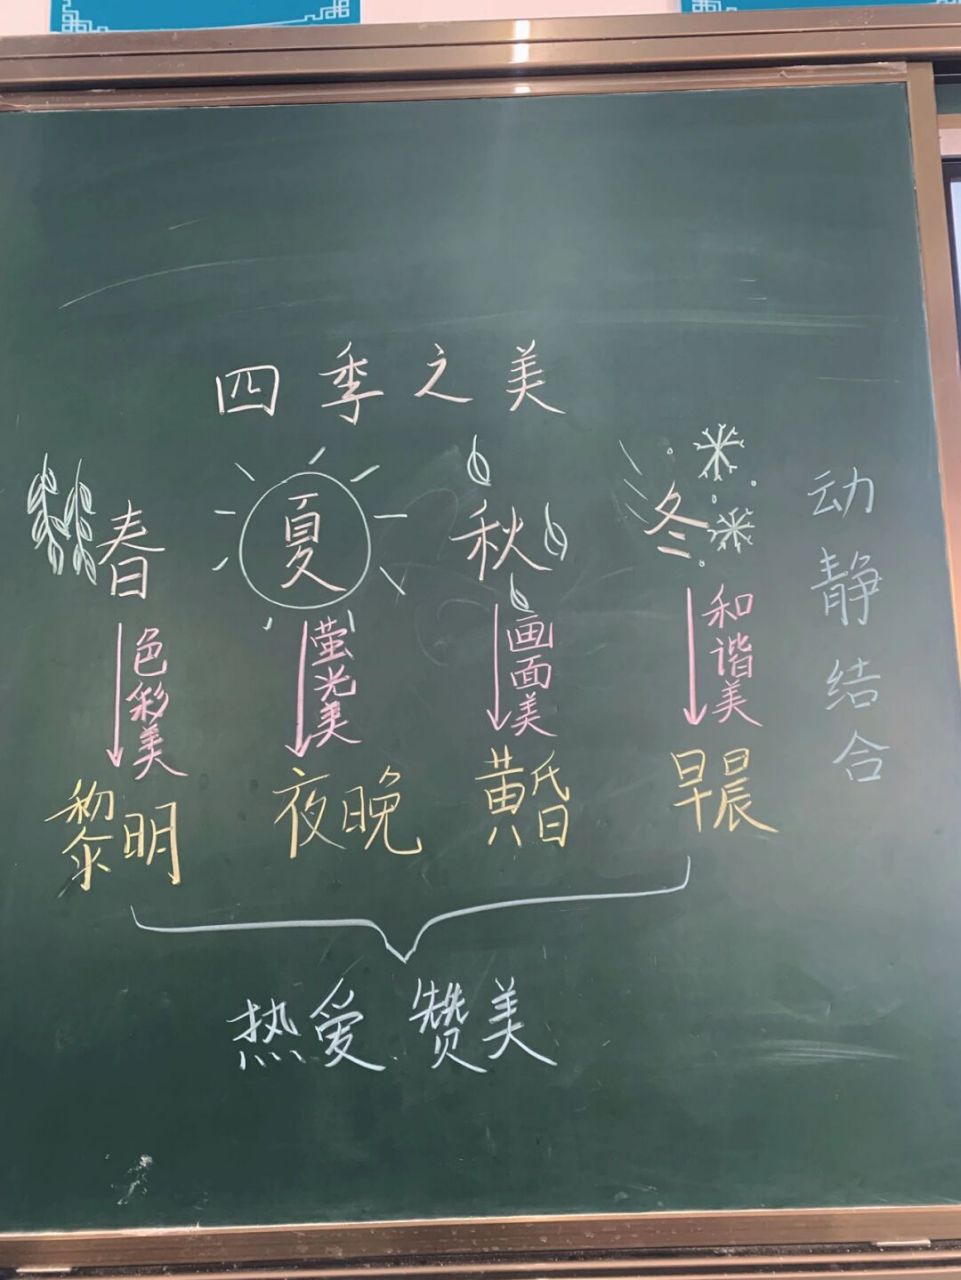 四季之美
春 夏 秋 冬
色彩美 萤光美 画面美 和谐美
黎明 夜晚 黄昏 早晨
动静结合
热爱 赞美